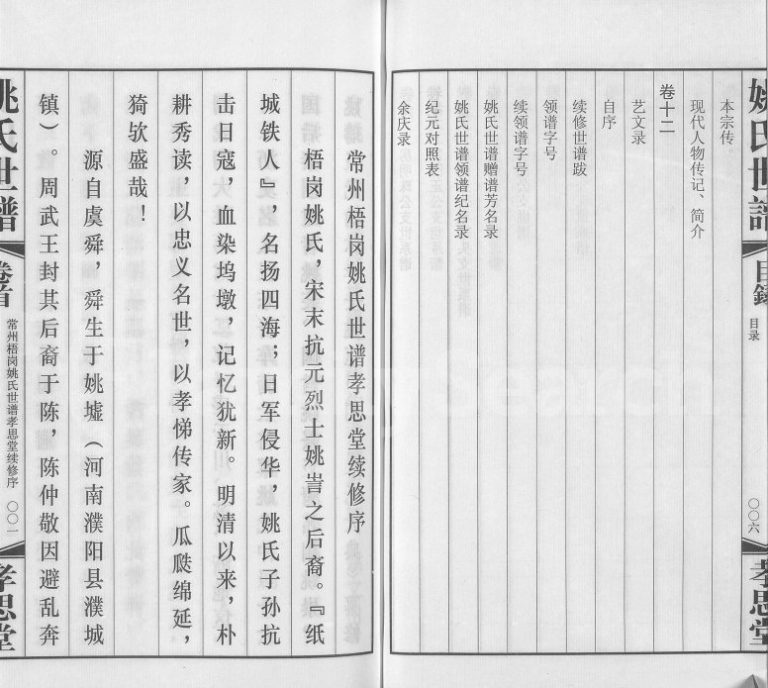 姚氏世譜
目錄
目录
〇〇六
孝思堂
本宗传。
现代人物传记、简介
卷十二
艺文录
自序
续修世谱跋
领谱字号
续领谱字号
姚氏世谱赠谱芳名录
姚氏世谱领谱纪名录
纪元对照表
余庆录
常州梧岗姚氏世谱孝思堂续修序
梧岗姚氏，宋末抗元烈士姚訔之后裔。『纸
城铁人』，名扬四海；日军侵华，姚氏子孙抗
击日寇，血染坞墩，记忆犹新。明清以来，朴
耕秀读，以忠义名世，以孝悌传家。瓜瓞绵延，
猗欤盛哉！
源自虞舜，舜生于姚墟（河南濮阳县濮城
镇）。周武王封其后裔于陈，陈仲敬因避乱奔
姚氏世譜
卷首
常州梧岗姚氏世谱孝思堂续修序
〇〇一
孝思堂